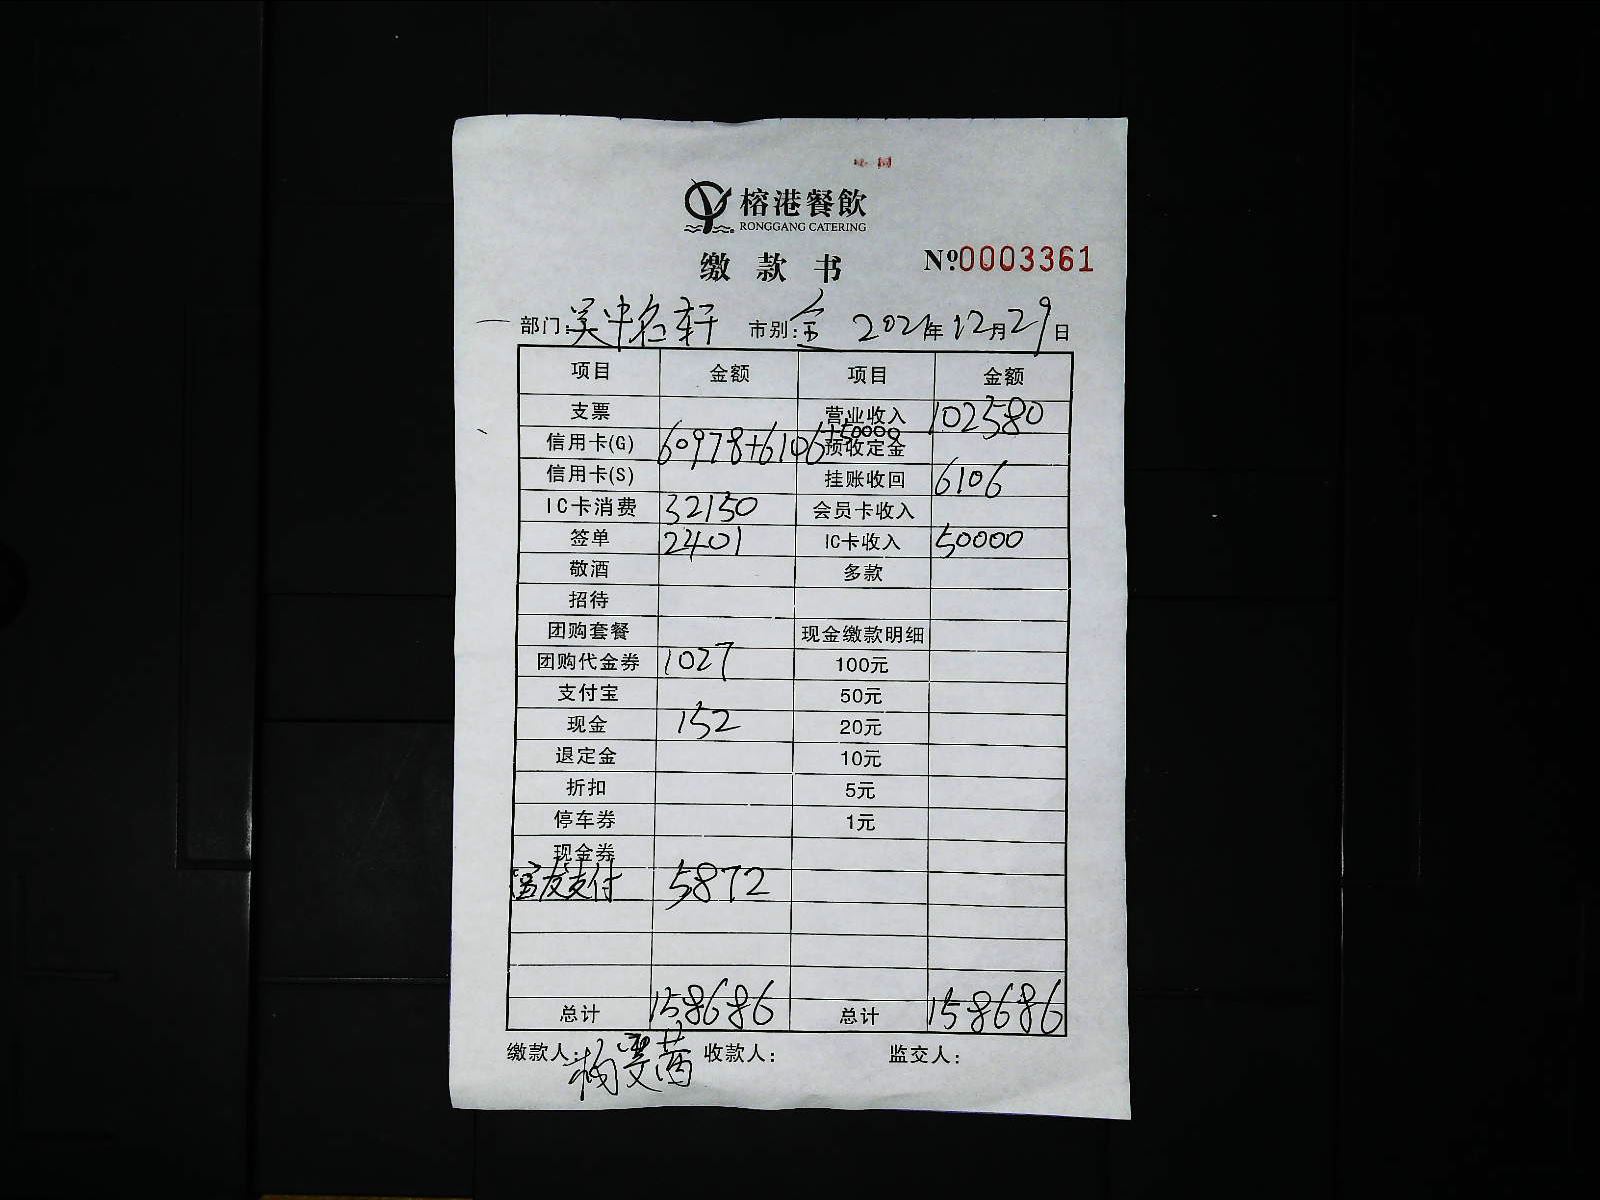 榕港餐飲
RONGGANG CATERING
缴款书 №0003361
部门:吴中名轩 市别:全 2021年12月29日
项目 金额 项目 金额
支票 营业收入 102580
信用卡(G) 60978+6106+50000 预收定金
信用卡(S) 挂账收回 6106
IC卡消费 32150 会员卡收入
签单 2401 IC卡收入 50000
敬酒 多款
招待
团购套餐 现金缴款明细
团购代金券 1027 100元
支付宝 50元
现金 152 20元
退定金 10元
折扣 5元
停车券 1元
现金券
支付 5872
总计 158686 总计 158686
缴款人: 收款人: 监交人: